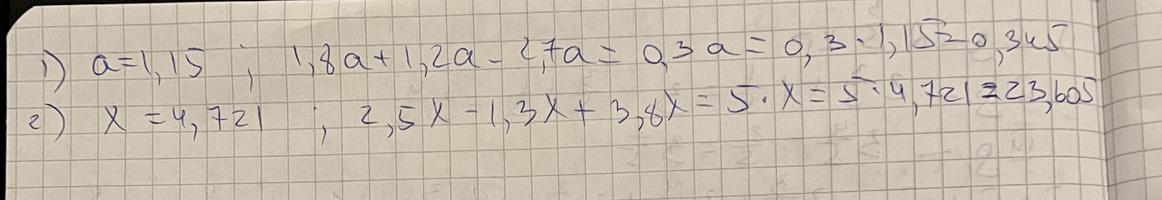 1) a=1,15 ; 1,8a+1,2a-2,7a=0,3a=0,3·1,15=0,345
2) x=4,721 ; 2,5x-1,3x+3,8x=5·x=5·4,721=23,605